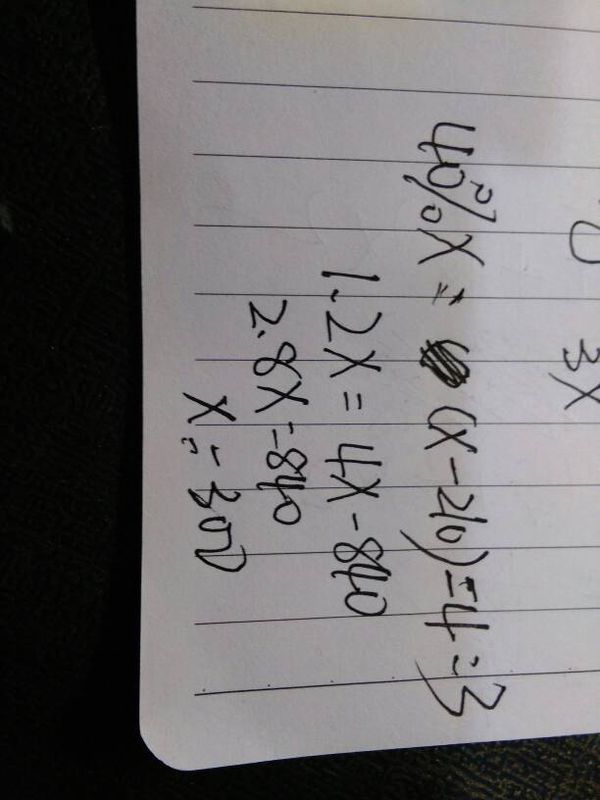 3X
40%X = (X-210)=4:3
1.2X = 4X-840
2.8X=840
X=300